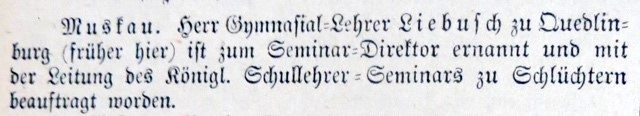 Muskau. Herr Gymnasial-Lehrer Liebusch zu Quedlin-
burg (früher hier) ist zum Seminar-Direktor ernannt und mit
der Leitung des Königl. Schullehrer-Seminars zu Schlüchtern
beauftragt worden.